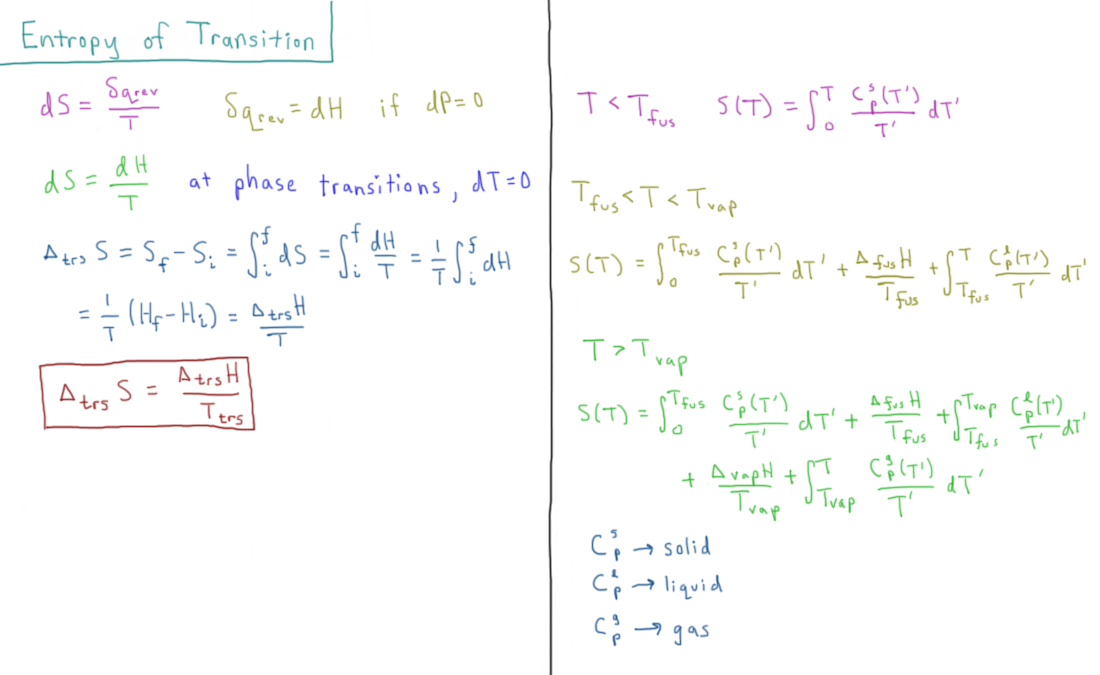 Entropy of Transition
dS = δq_rev / T    δq_rev = dH if dP = 0
dS = dH / T at phase transitions, dT = 0
Δ_trs S = S_f - S_i = ∫_i^f dS = ∫_i^f dH/T = 1/T ∫_i^f dH
= 1/T (H_f - H_i) = Δ_trs H / T
Δ_trs S = Δ_trs H / T_trs
T < T_fus    S(T) = ∫_0^T C_p^s(T')/T' dT'
T_fus < T < T_vap
S(T) = ∫_0^T_fus C_p^s(T')/T' dT' + Δ_fus H / T_fus + ∫_T_fus^T C_p^l(T')/T' dT'
T > T_vap
S(T) = ∫_0^T_fus C_p^s(T')/T' dT' + Δ_fus H / T_fus + ∫_T_fus^T_vap C_p^l(T')/T' dT'
+ Δ_vap H / T_vap + ∫_T_vap^T C_p^g(T')/T' dT'
C_p^s → solid
C_p^l → liquid
C_p^g → gas